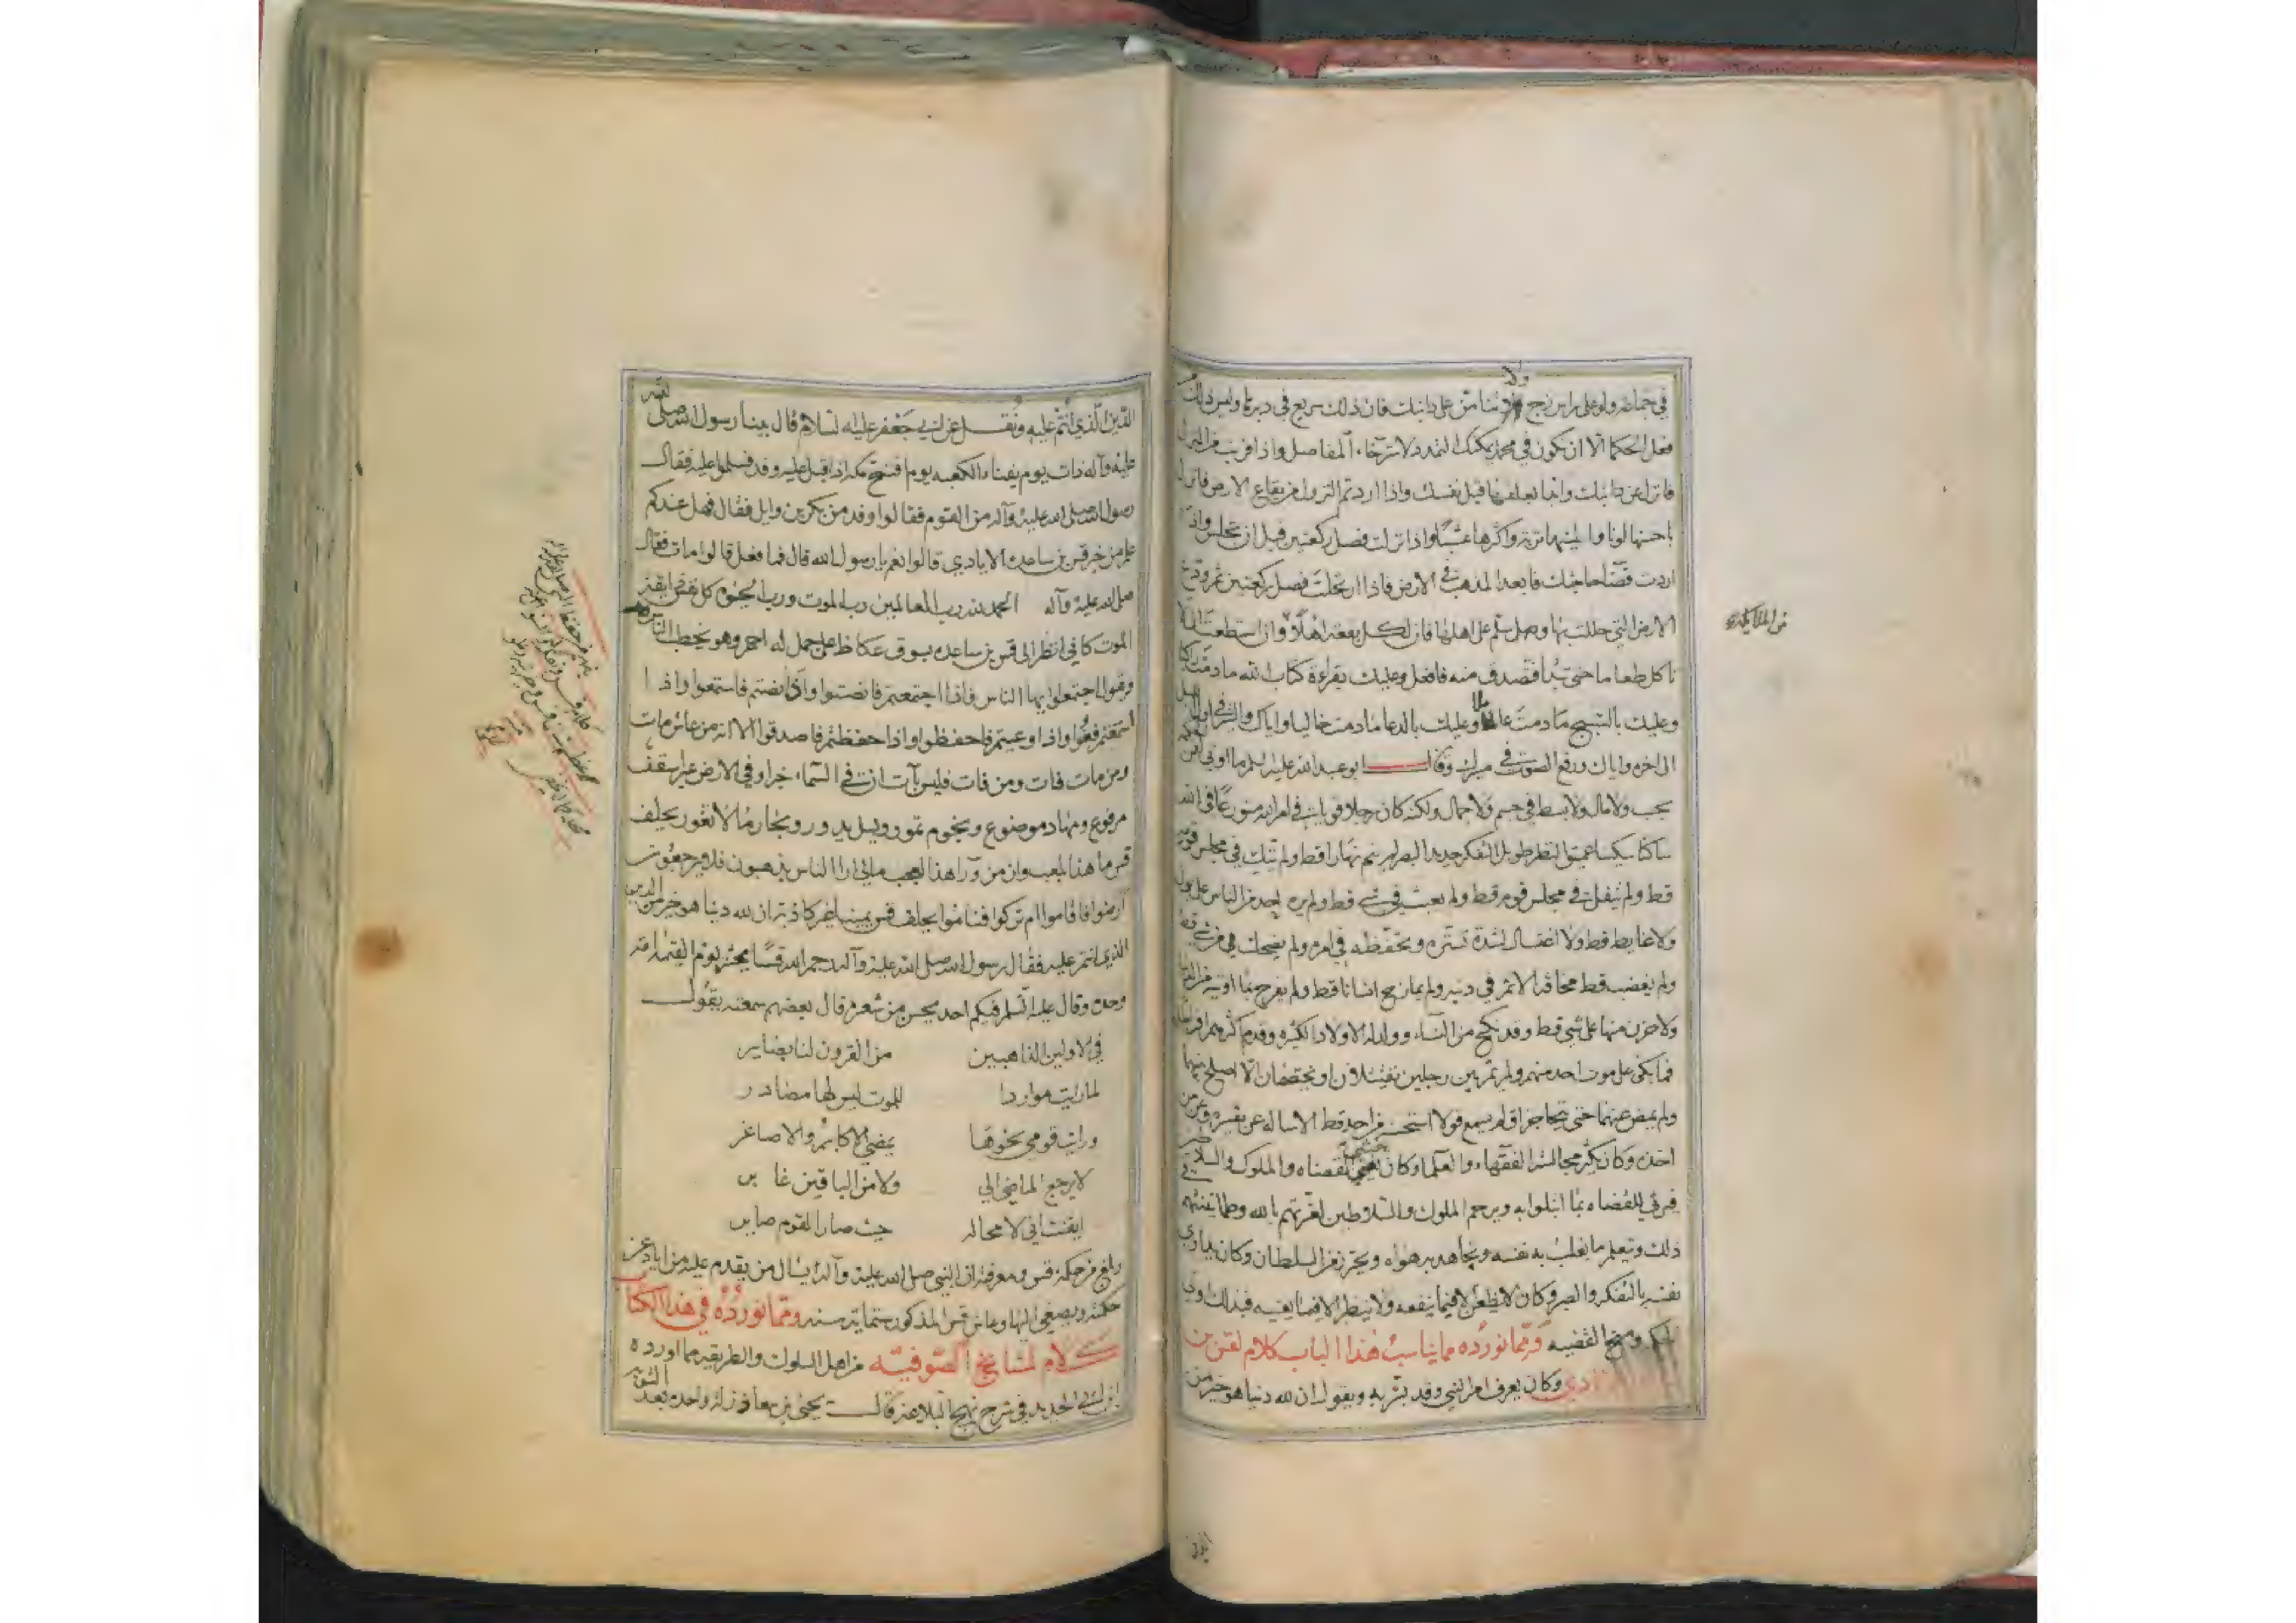 في جماعة ولو على راس زج ولا تنامن على دابتك فان ذلك سريع في دبرها وليس ذلك
فعل الحكما الا ان تكون في محمل يمكنك التمدد لاسترخاء المفاصل واذا قربت من المنزل
فانزل عن دابتك وابدا بعلفها قبل نفسك واذا اردتم النزول من بقاع الارض فانزل
باحسنها لونا والينها تربة واكثرها عشبا واذا نزلت فصل ركعتين قبل ان تجلس واذا
اردت قضاء حاجتك فابعد المذهب في الارض فاذا ارتحلت فصل ركعتين ثم ودع
الارض التي حللت بها وصل سلم على اهلها فان لكل بقعة اهلا وان استطعت الا
تاكل طعاما حتى تبدا فتصدق منه فافعل وعليك بقراءة كتاب الله ما دمت راكبا
وعليك بالتسبيح ما دمت عاملا وعليك بالدعا ما دمت خاليا واياك والسير في اول الليل
الى اخره واياك ورفع الصوت في مسيرك وقال ابو عبد الله عليه السلم ما اوتي لقمن الحكمة
بحب ولا مال ولا بسط في جسم ولا جمال ولكنه كان رجلا قويا في امر الله متورعا في الله
ساكتا سكيتا عميق النظر طويل التفكر حديد البصر لم ينم نهارا قط ولم يتك في مجلس قوم
قط ولم يتفل في مجلس قوم قط ولم يعبث في شي قط ولم يره احد من الناس على بول
ولا غايط قط ولا اغتسال لشدة تستره وتحفظه في امره ولم يضحك من شي قط
ولم يغضب قط مخافة الاثم في دينه ولم يمازح انسانا قط ولم يفرح بما اوتيه من الدنيا
ولا حزن منها على شي قط وقد نكح من النساء وولد له الاولاد الكثيرة وقدم اكثرهم افراطا
فما بكى على موت احد منهم ولم يمر بين رجلين يقتتلان او يختصمان الا اصلح بينهما
ولم يمض عنهما حتى تحاجزا ولم يسمع قولا استحسنه من احد قط الا ساله عن تفسيره وعمن
اخذه وكان يكثر مجالسة الفقهاء والعلما وكان يغشى القضاه والملوك والسلاطين
فيرثي للقضاه بما ابتلوا به ويرحم الملوك والسلاطين لغرتهم بالله وطمانينتهم
ذلك ويتعلم ما يغلب به نفسه ويجاهد به هواه ويحترز من السلطان وكان يداوي
نفسه بالتفكر والعبر وكان لا يظعن الا فيما ينفعه ولا ينظر الا فيما يعنيه فبذلك اوتي
الحكمة ومنح القضيه ومما نورده مما يناسب هذا الباب كلام لقس بن
وكان يعرف امر النبي وقد بشر به ويقول ان لله دينا هو خير من
من الملائكة
الدين الذي انتم عليه ونقل عن ابي جعفر عليه السلام قال بينا رسول الله صلى الله
عليه وآله ذات يوم بفناء الكعبه يوم فتح مكه اذ اقبل عليه وفد فسلموا عليه فقال
رسول الله صلى الله عليه وآله من القوم فقالوا وفد من بكر بن وايل فقال فهل عندكم
علم من خبر قس بن ساعدة الايادي قالوا نعم يا رسول الله قال فما فعل قالوا مات فقال
صلى الله عليه وآله الحمد لله رب العالمين رب الموت ورب الحيوة كل نفس ذايقة
الموت كاني انظر الى قس بن ساعده بسوق عكاظ على جمل له احمر وهو يخطب الناس
ويقول اجتمعوا ايها الناس فاذا اجتمعتم فانصتوا واذا انصتم فاستمعوا واذا
استمعتم فعوا واذا وعيتم فاحفظوا واذا حفظتم فاصدقوا الا انه من عاش مات
ومن مات فات ومن فات فليس بآت ان في السماء خبرا وفي الارض عبرا سقف
مرفوع ومهاد موضوع ونجوم تمور وليل يدور وبحار ما لا تغور يحلف
قس ما هذا بلعب وان من وراء هذا لعجب مالي ارا الناس يذهبون فلا يرجعون
ارضوا فاقاموا ام تركوا فناموا يحلف قس يمينا غير كاذبة ان لله دينا هو خير من الدين
الذي انتم عليه فقال رسول الله صلى الله عليه وآله رحم الله قسا يحشر يوم القيمة امة
وحده وقال عليه السلم فيكم احد يحسن من شعره قال بعضهم سمعته يقول
في الاولين الذاهبين من القرون لنا بصاير
لما رايت مواردا للموت ليس لها مصادر
ورايت قومي نحوها يمضي الاكابر والاصاغر
لا يرجع الماضي الي ولا من الباقين غابر
ايقنت اني لا محاله حيث صار القوم صاير
وبلغ من حكمة قس ومعرفته ان النبي صلى الله عليه وآله كان يسال من يقدم عليه من اياد عن
حكمته ويصغي اليها وعاش قس المذكور ستماية سنه ومما نورده في هذا الكتاب
كلام لمشايخ الصوفيه من اهل السلوك والطريقه مما اورده
ابن ابي الحديد في شرح نهج البلاغة قال يحيى بن معاذ